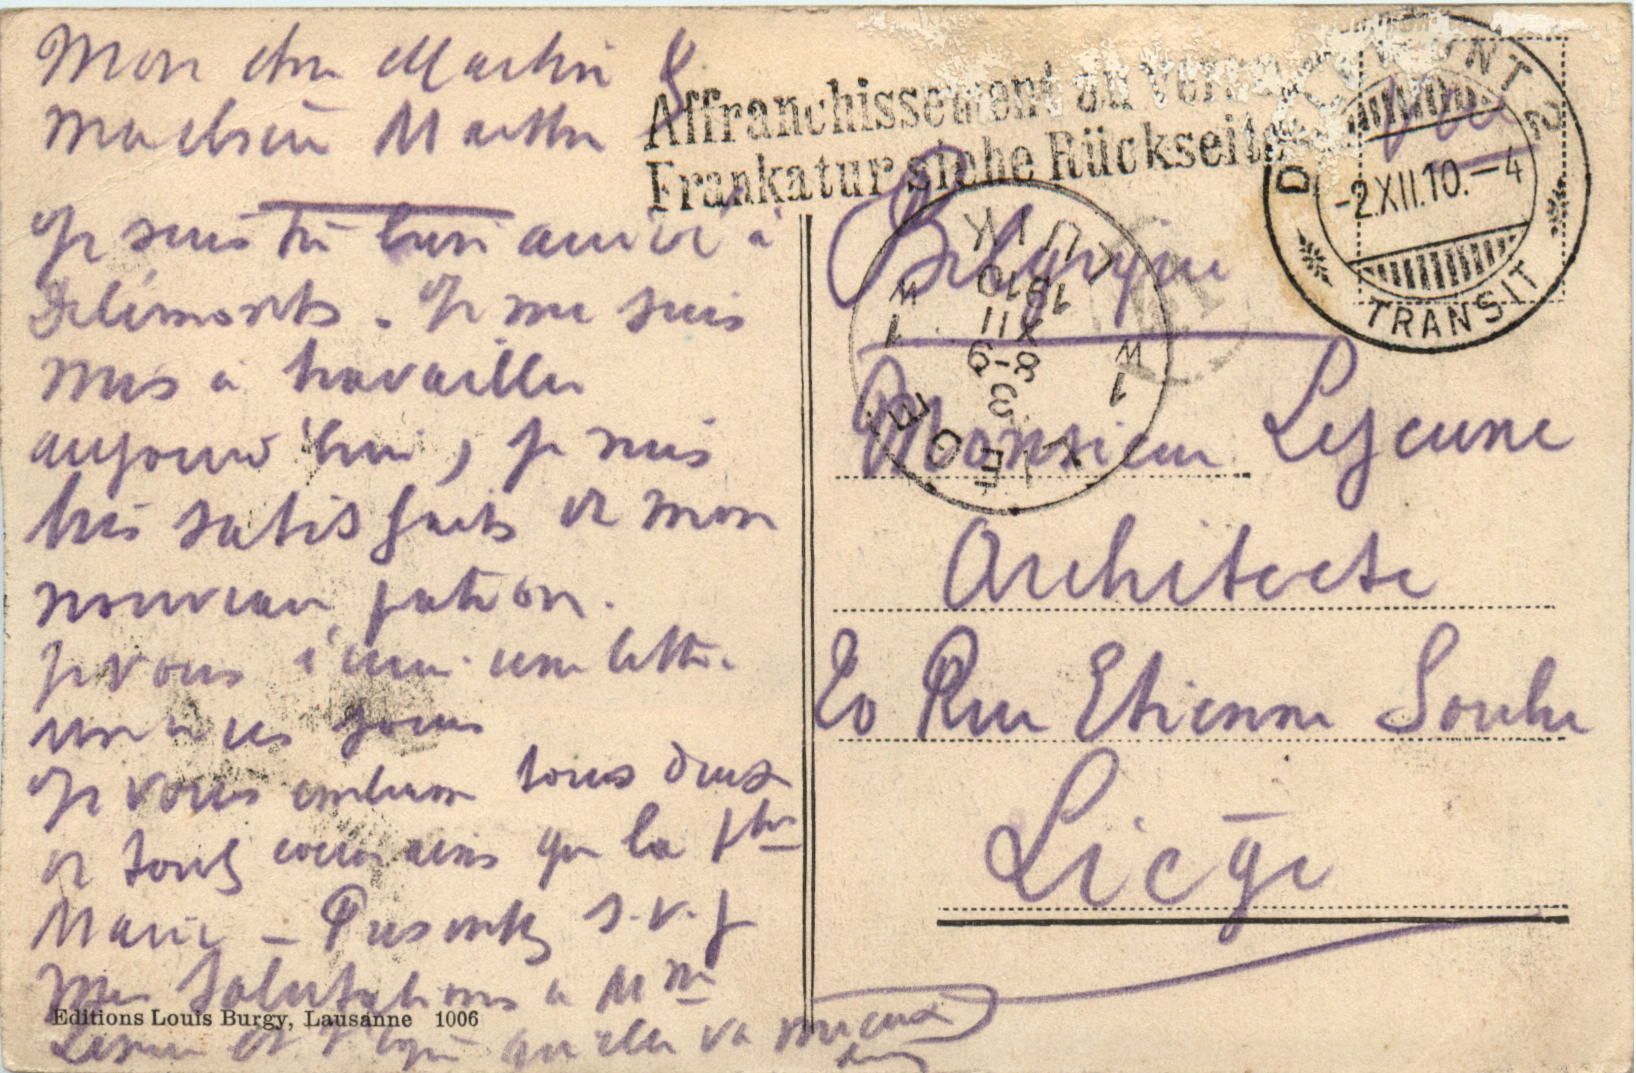 Mon cher Martin &
ma chère Marthe
Je suis très bien arrivé à
Delémonts. Je me suis
mis à travailler
aujourd'hui, je suis
très satisfaits de mon
nouveau patron.
Je vous écrirai une lettre
un de ces jours
Je vous embrasse tous deux
de tout coeur ainsi que la ptte
Marie – Présentez s.v.p
mes salutations à Mme
et j'espère qu'elle va mieux
Editions Louis Burgy, Lausanne 1006
Affranchissement au Verso
Frankatur siehe Rückseite
DELÉMONT 2
-2.XII.10.-4
TRANSIT
LUIK
1910
XII
8-9
3
LIEGE
1 W
1 W
Belgique
Monsieur Lejeune
Architecte
20 Rue Etienne Soubre
Liège